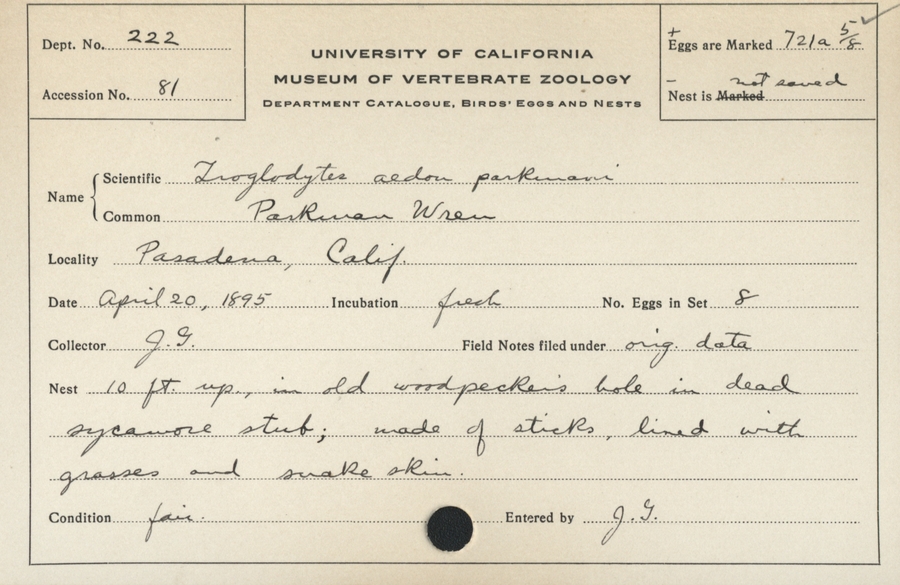 Dept. No. 222
Accession No. 81
UNIVERSITY OF CALIFORNIA
MUSEUM OF VERTEBRATE ZOOLOGY
DEPARTMENT CATALOGUE, BIRDS' EGGS AND NESTS
+
Eggs are Marked 721a 5/8
- not saved
Nest is Marked
Name
Scientific Troglodytes aedon parkmani
Common Parkman Wren
Locality Pasadena, Calif.
Date April 20, 1895 Incubation fresh No. Eggs in Set 8
Collector J.G. Field Notes filed under orig. data
Nest 10 ft. up., in old woodpecker's hole in dead
sycamore stub; made of sticks, lined with
grasses and snake skin.
Condition fair. Entered by J.G.